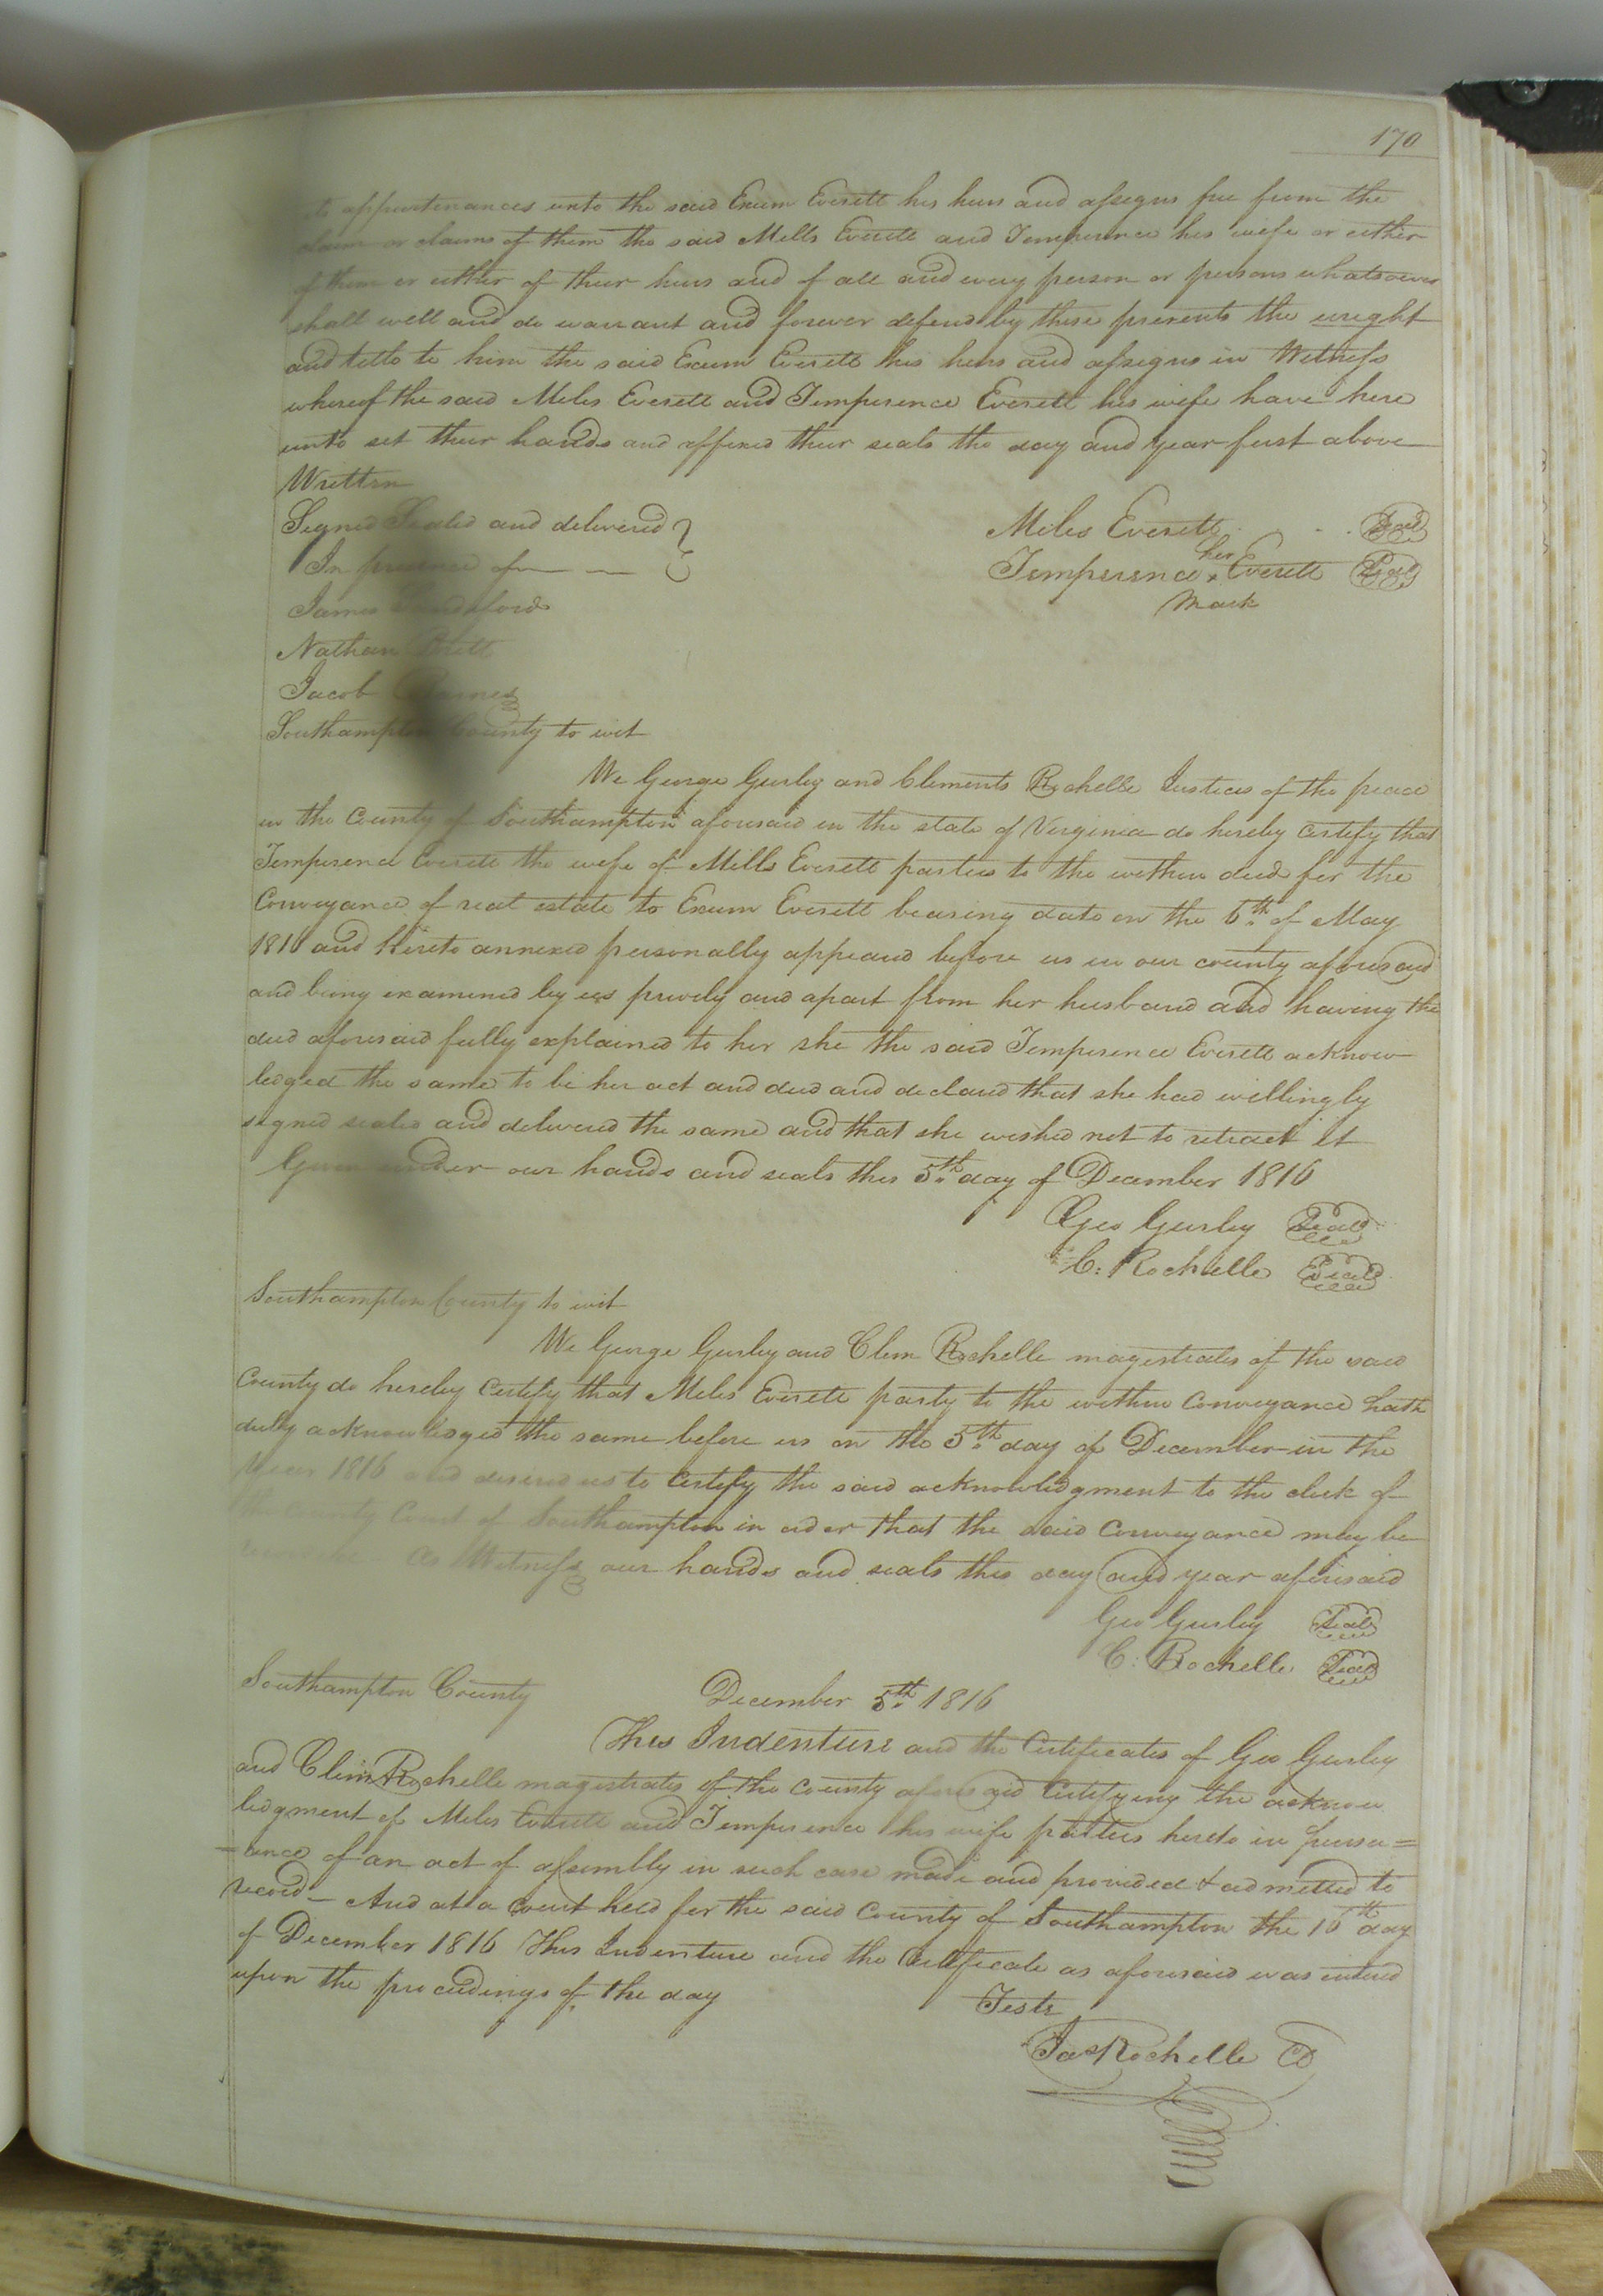 170
appurtenances unto the said Exum Everett his heirs and assigns free from the
claim or claims of them the said Mills Everett and Temperence his wife or either
of them or either of their heirs and of all and every person or persons whatsoever
shall well and do warrant and forever defend by these presents the wright
and title to him the said Exum Everett his heirs and assigns in Witness
whereof the said Miles Everett and Temperence Everett his wife have here
unto set their hands and affixed their seals the day and year first above
Written
Signed Sealed and delivered
In presence of
Miles Everett Seal
her
Temperence x Everett Seal
Mark
James
Nathan Britt
Jacob Barnes
Southampton County to wit
We George Gurley and Clements Rochelle Justices of the peace
in the County of Southampton aforesaid in the state of Virginia do hereby certify that
Temperence Everett the wife of Mills Everett parties to the within deed for the
Conveyance of real estate to Exum Everett bearing date on the 6th of May
1816 and Hereto annexed personally appeared before us in our county aforesaid
and being examined by us privily and apart from her husband and having the
deed aforesaid fully explained to her she the said Temperence Everett acknow
ledged the same to be her act and deed and declared that she had willingly
signed sealed and delivered the same and that she wished not to retract it
Given under our hands and seals this 5th day of December 1816
Geo Gurley Seal
C: Rochelle Seal
Southampton County to wit
We George Gurley and Clem Rochelle magestrates of the said
County do hereby Certify that Miles Everett party to the within Conveyance hath
duly acknowledged the same before us on the 5th day of December in the
Year 1816 and desired us to Certify the said acknowledgment to the clerk of
the County Court of Southampton in order that the said Conveyance may be
As Witness our hands and seals this day and year aforesaid
Geo Gurley Seal
C: Rochelle Seal
Southampton County December 5th 1816
This Indenture and the Certificates of Geo Gurley
and Clem Rochelle magestrates of the County aforesaid Certifying the acknow
ledgment of Miles Everett and Temperence his wife parties hereto in pursu=
=ance of an act of assembly in such case made and provided & admitted to
record— And at a Court held for the said County of Southampton the 16th day
of December 1816 This Indenture and the Certificate as aforesaid was entered
upon the proceedings of the day
Teste
Jas Rochelle